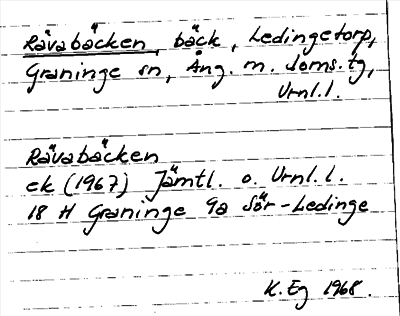 Rävabäcken, bäck, Ledingetorp,
Graninge sn, Ång. m. doms.tg,
Vrnl.l.
Rävabäcken
ek (1967) Jämtl. o. Vrnl.l.
18 H Graninge 9a Sör-Ledinge
K. Eg 1968.